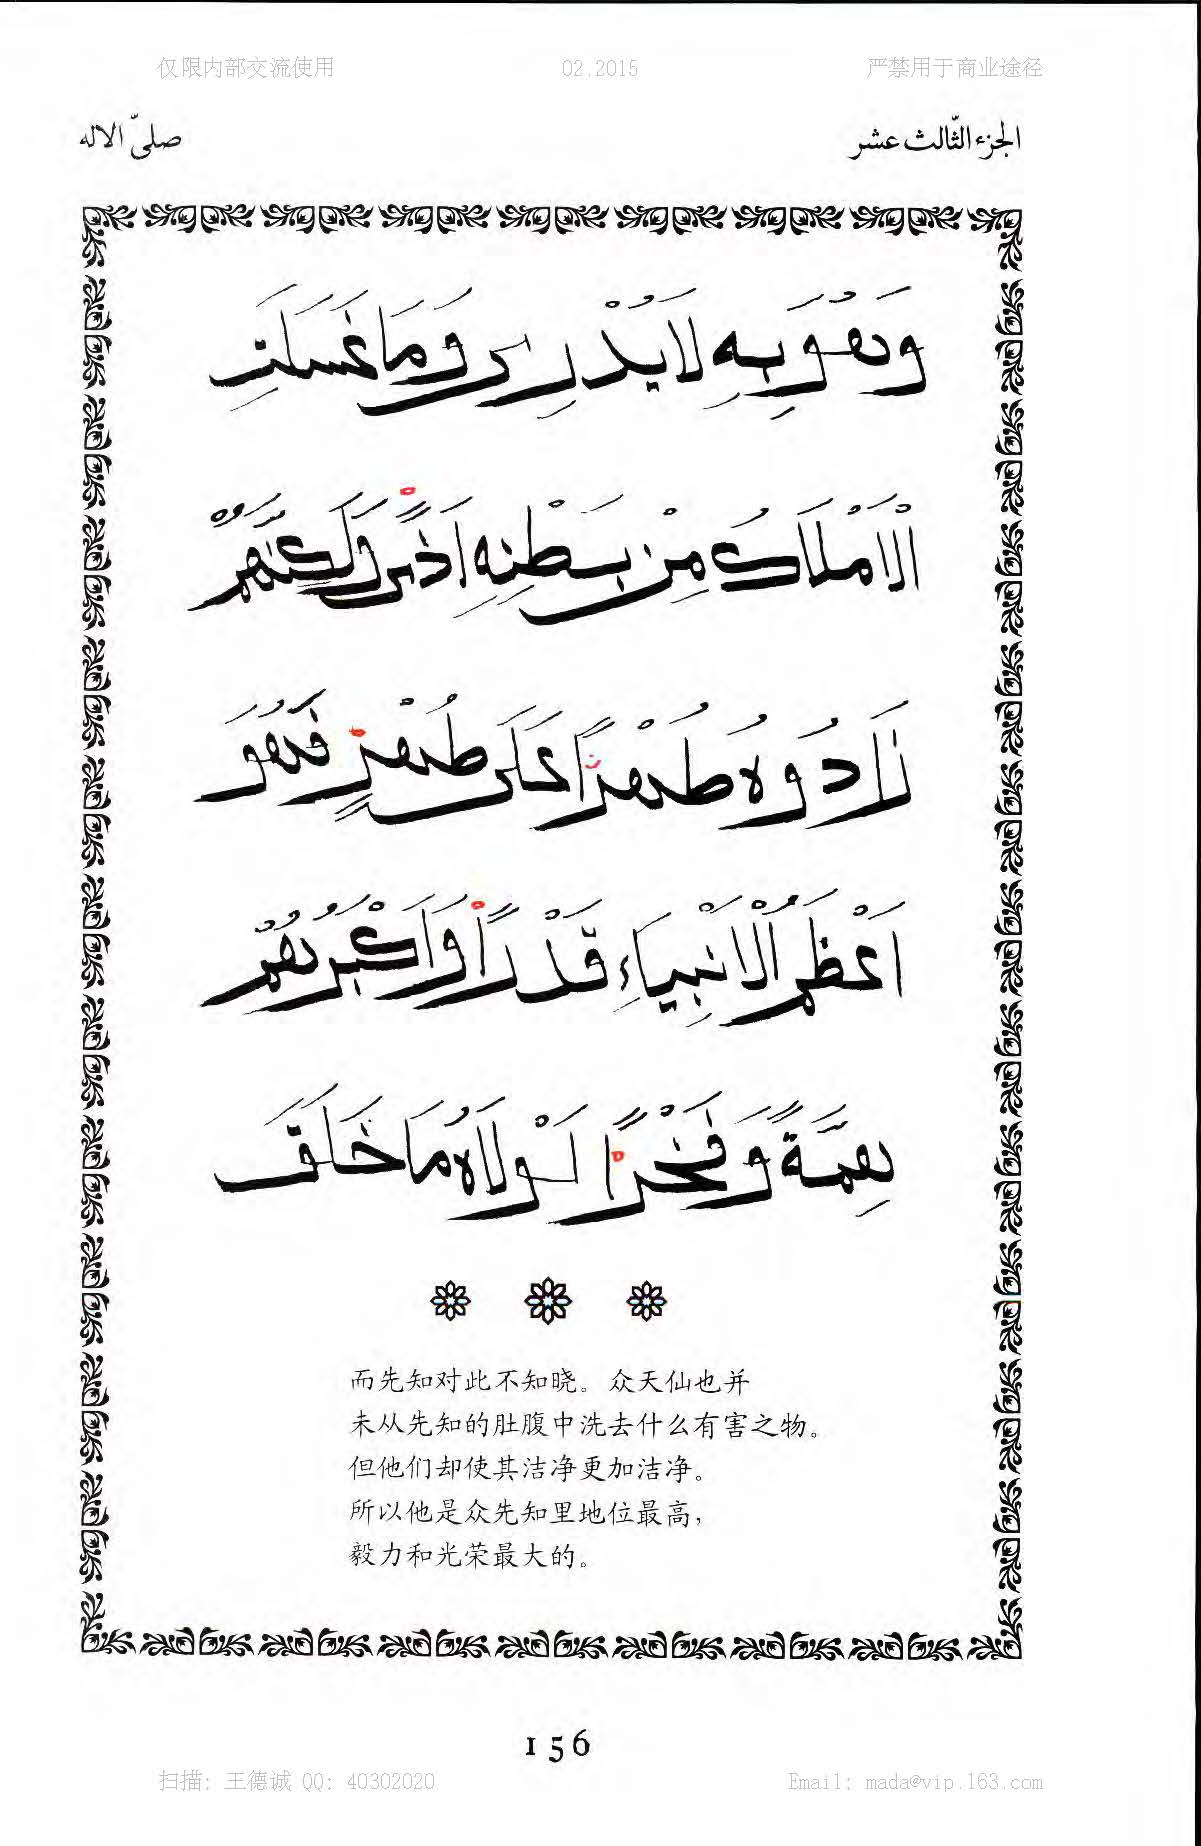 仅限内部交流使用 02.2015 严禁用于商业途径
الجزء الثّالث عشر صلىّ الاله
وَهُوَ بِهِ لَا يُدْرِى وَمَا غَسَلَتِ
الْاَمْلَاكُ مِنْ بَطْنِهِ اَذًى وَلَكِنَّهُمْ
زَادُوهُ طُهْرًا عَلَى طُهْرٍ فَهُوَ
اَعْظَمُ الْاَنْبِيَاءِ قَدْرًا وَاَكْبَرُهُمْ
هِمَّةً وَفَخْرًا لَوْلَاهُ مَا خَلَقَ
而先知对此不知晓。众天仙也并
未从先知的肚腹中洗去什么有害之物。
但他们却使其洁净更加洁净。
所以他是众先知里地位最高，
毅力和光荣最大的。
156
扫描: 王德诚 QQ: 40302020 Email: mada@vip.163.com